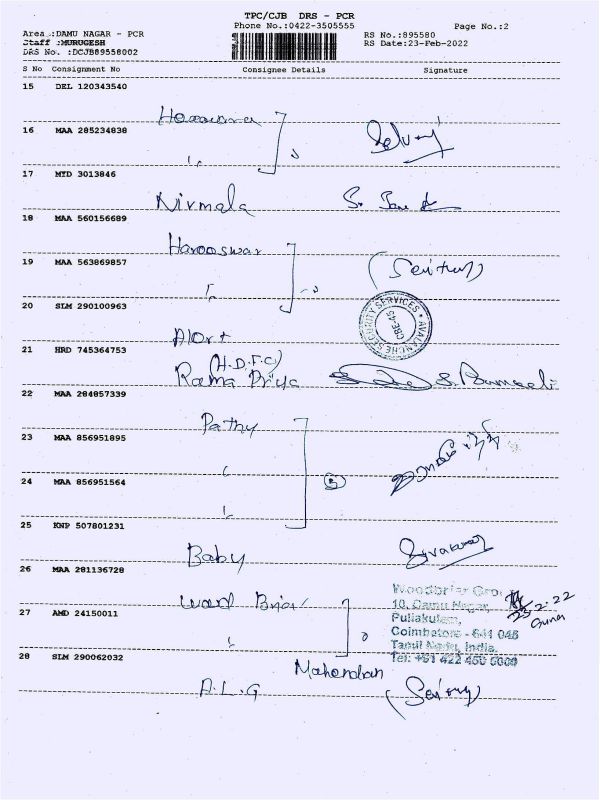 TPC/CJB DRS - PCR
Phone No.:0422-3505555
Page No.:2
Area :DAMU NAGAR - PCR
RS No.:895580
Staff :MURUGESH
RS Date:23-Feb-2022
DRS No. :DCJB89558002
S No Consignment No Consignee Details Signature
15 DEL 120343540
16 MAA 285234838
17 MTD 3013846
Nirmala
18 MAA 560156689
Harooswar
19 MAA 563869857
20 SLM 290100963
AVALANCHE SECURITY SERVICES
CBE-45
Alert
21 HRD 745364753
(H.D.F.C)
Rama Priya
22 MAA 284857339
Pathy
23 MAA 856951895
24 MAA 856951564
25 KNP 507801231
Baby
26 MAA 281136728
Woodbriar Grou
10, Damu Nagar,
23.2.22
27 AMD 24150011
Puliakulam,
Guna
Coimbatore - 641 045
Tamil Nadu, India.
28 SLM 290062032
Tel: +91 422 450 5000
Mahendran
A.L.G